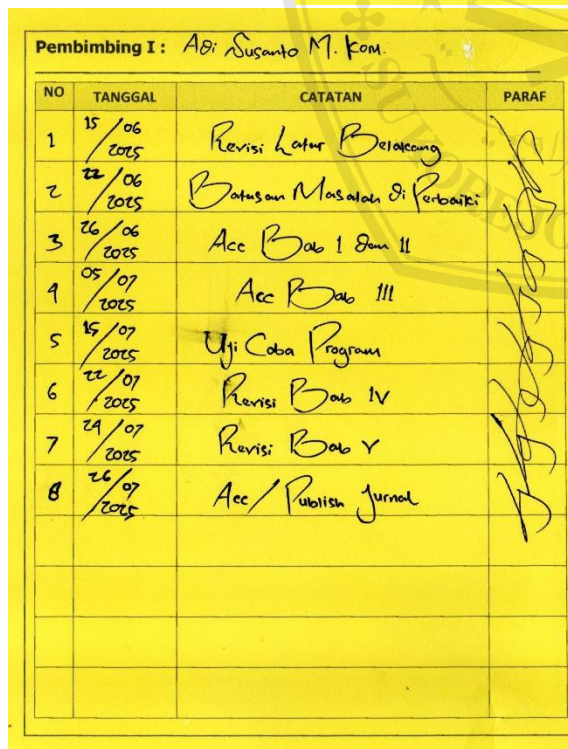 Pembimbing I : Adi Susanto M. Kom.
NO TANGGAL CATATAN PARAF
1 15/06 2025 Revisi Latar Belakang
2 22/06 2025 Batasan Masalah di Perbaiki
3 26/06 2025 Acc Bab I dan II
4 05/07 2025 Acc Bab III
5 15/07 2025 Uji Coba Program
6 22/07 2025 Revisi Bab IV
7 24/07 2025 Revisi Bab V
8 26/07 2025 Acc / Publish Jurnal
SUKOREJO